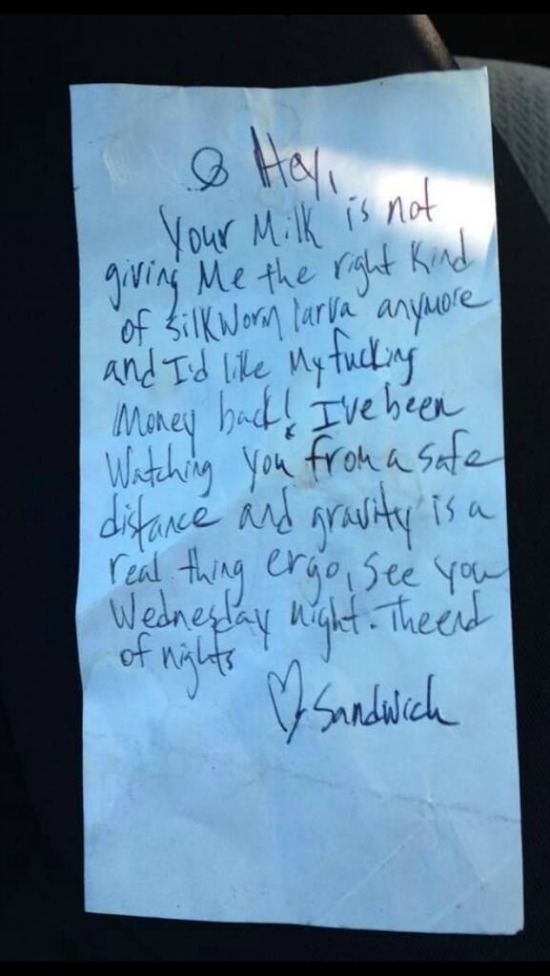 Hey,
Your Milk is not
giving Me the right Kind
of silkworm larva anymore
and I'd like My fucking
Money back! I've been
Watching you from a safe
distance and gravity is a
real thing ergo, see you
Wednesday night. The end
of nights
♡ Sandwich